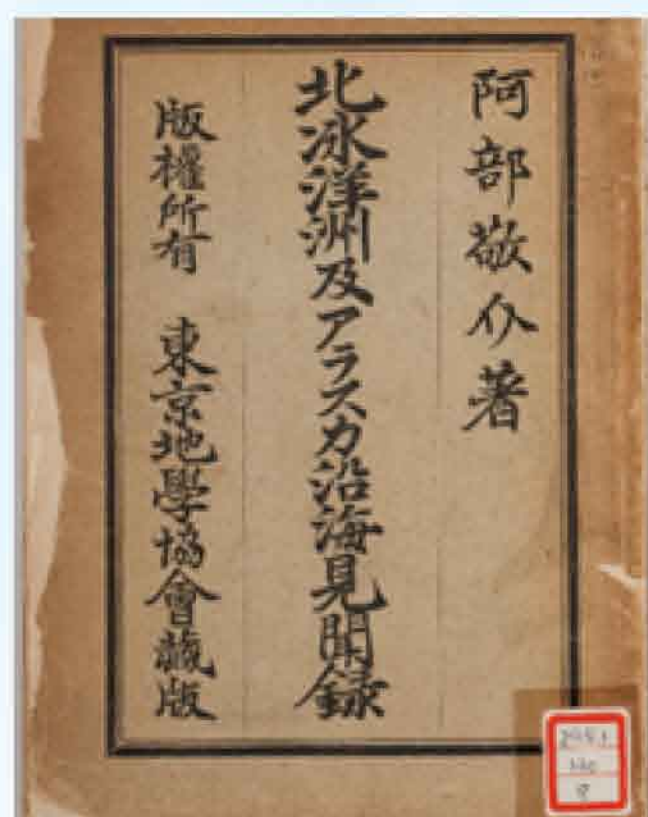 阿部敬介著
北氷洋洲及アラスカ沿海見聞録
版權所有 東京地學協會藏版